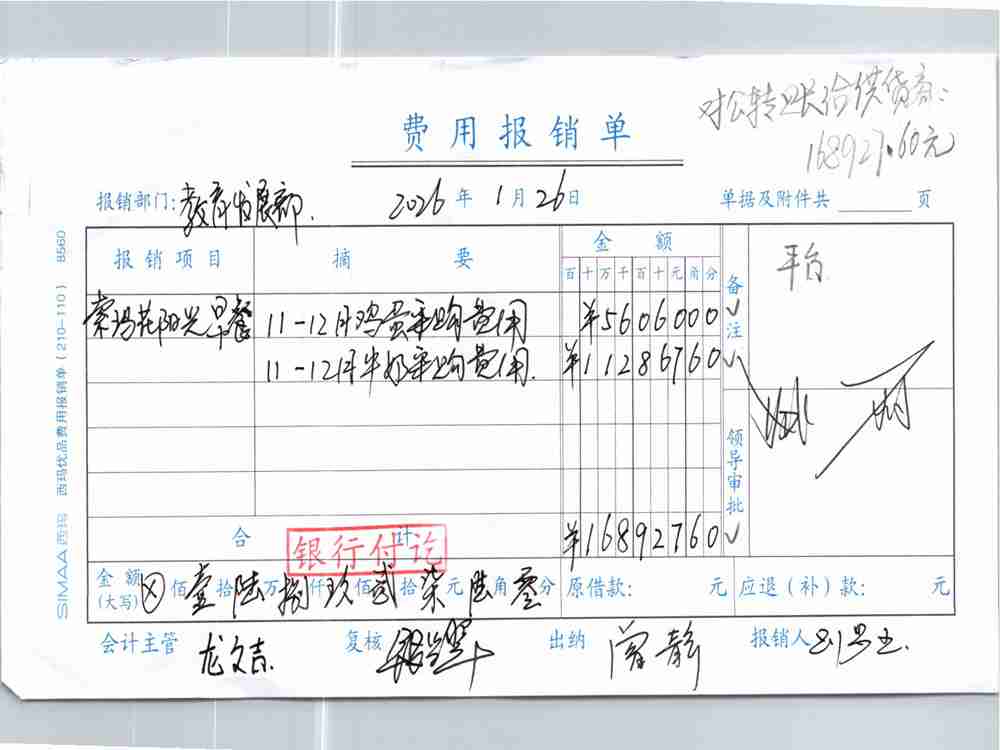 对公转账给供货商:
168927.60元
费用报销单
报销部门: 教育发展部. 2026年1月26日 单据及附件共 页
报销项目 摘要 金额 备注 平台
百十万千百十元角分
索玛花阳光早餐 11-12月鸡蛋采购费用 ¥5606000
11-12月牛奶采购费用. ¥11286760
领导审批
合计 ¥16892760
银行付讫
金额(大写) ⊗佰壹拾陆万捌仟玖佰贰拾柒元陆角零分 原借款: 元 应退(补)款: 元
会计主管 龙文吉. 复核 出纳 曾静 报销人
SIMAA 西玛 西玛优品费用报销单(210-110) 8560